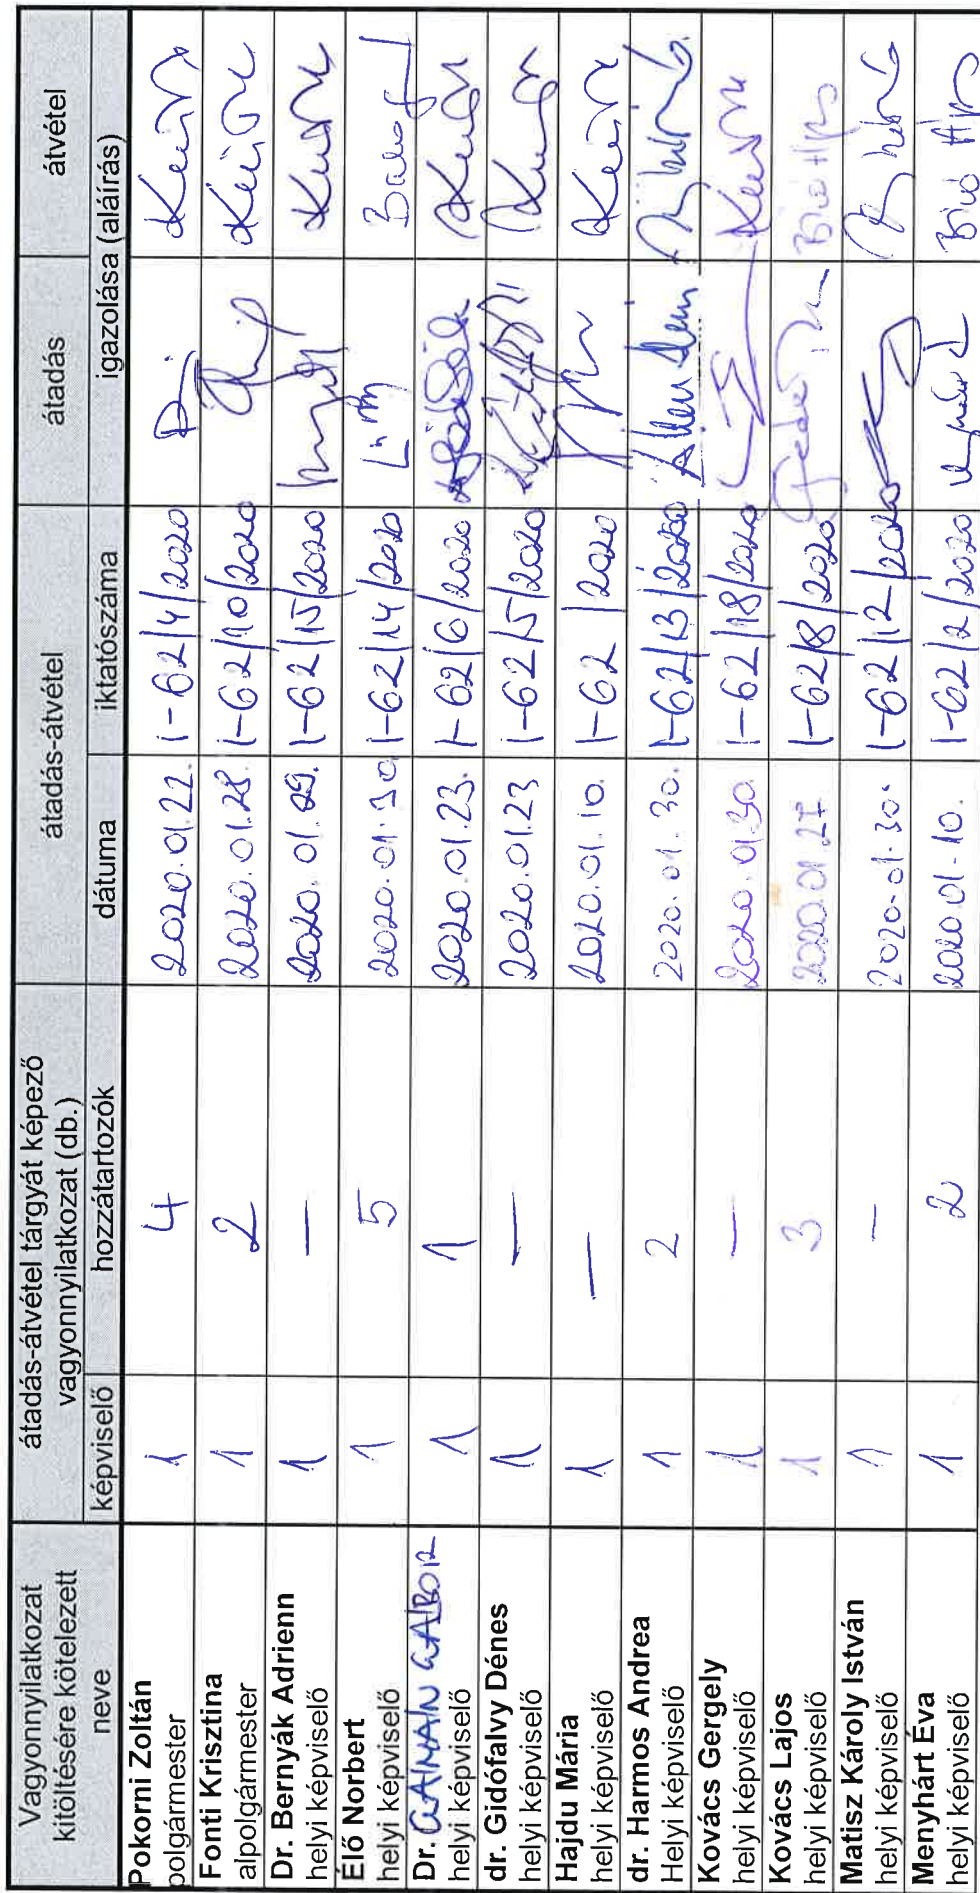 Vagyonnyilatkozat
kitöltésére kötelezett
neve
átadás-átvétel tárgyát képező
vagyonnyilatkozat (db.)
átadás-átvétel
átadás
átvétel
képviselő
hozzátartozók
dátuma
iktatószáma
igazolása (aláírás)
Pokorni Zoltán
polgármester
1 4 2020.01.22. 1-62/4/2020
Fonti Krisztina
alpolgármester
1 2 2020.01.28. 1-62/10/2020
Dr. Bernyák Adrienn
helyi képviselő
1 — 2020.01.29. 1-62/15/2020
Élő Norbert
helyi képviselő
1 5 2020.01.30 1-62/14/2020
Dr. GAIMAN GÁBOR
helyi képviselő
1 1 2020.01.23. 1-62/6/2020
dr. Gidófalvy Dénes
helyi képviselő
1 — 2020.01.23 1-62/5/2020
Hajdu Mária
helyi képviselő
1 — 2020.01.10. 1-62 /2020
dr. Harmos Andrea
Helyi képviselő
1 2 2020.01.30. 1-62/13/2020
Kovács Gergely
helyi képviselő
1 — 2020.01.30. 1-62/18/2020
Kovács Lajos
helyi képviselő
1 3 2020.01.27 1-62/8/2020
Matisz Károly István
helyi képviselő
1 — 2020.01.30. 1-62/12/2020
Menyhárt Éva
helyi képviselő
1 2 2020.01.10. 1-62/2/2020